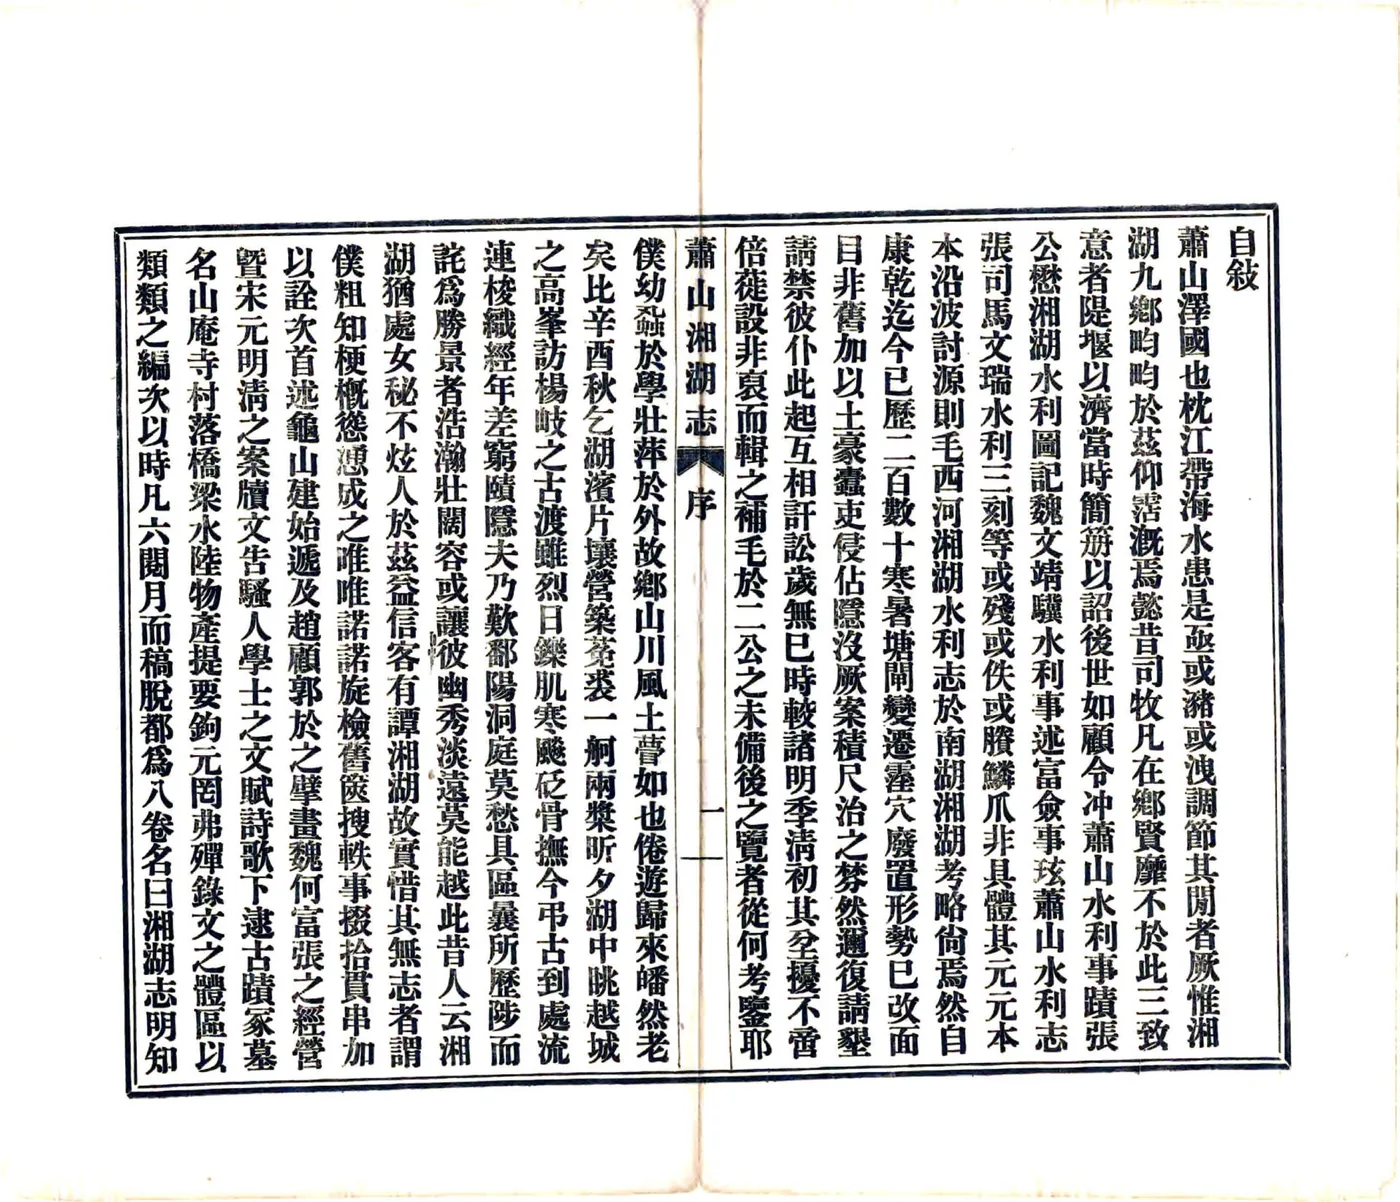 自敍
蕭山澤國也枕江帶海水患是亟或瀦或洩調節其閒者厥惟湘
湖九鄉畇畇於茲仰霑漑焉懿昔司牧凡在鄉賢靡不於此三致
意者隄堰以濟當時簡册以詔後世如顧令冲蕭山水利事蹟張
公懋湘湖水利圖記魏文靖驥水利事述富僉事玹蕭山水利志
張司馬文瑞水利三刻等或殘或佚或賸鱗爪非具體其元元本
本沿波討源則毛西河湘湖水利志於南湖湘湖考略尙焉然自
康乾迄今已歷二百數十寒暑塘閘變遷霪穴廢置形勢已改面
目非舊加以土豪蠹吏侵佔隱沒厥案積尺治之棼然邇復請墾
請禁彼仆此起互相訐訟歲無已時較諸明季淸初其坌擾不啻
倍蓰設非裒而輯之補毛於二公之未備後之覽者從何考鑒耶
蕭山湘湖志
序
一
僕幼蝨於學壯萍於外故鄉山川風土瞢如也倦遊歸來皤然老
矣比辛酉秋乞湖濱片壤營築菟裘一舸兩槳昕夕湖中眺越城
之高峯訪楊岐之古渡雖烈日鑠肌寒颷砭骨撫今弔古到處流
連梭織經年差窮賾隱夫乃歎鄱陽洞庭莫愁具區曩所歷陟而
詫爲勝景者浩瀚壯闊容或讓彼幽秀淡遠莫能越此昔人云湘
湖猶處女秘不炫人於茲益信客有譚湘湖故實惜其無志者謂
僕粗知梗槪慫恿成之唯唯諾諾旋檢舊篋搜軼事掇拾貫串加
以詮次首述龜山建始遞及趙顧郭於之擘畫魏何富張之經營
曁宋元明淸之案牘文告騷人學士之文賦詩歌下逮古蹟冢墓
名山庵寺村落橋梁水陸物產提要鉤元罔弗殫錄文之體區以
類類之編次以時凡六閱月而稿脫都爲八卷名曰湘湖志明知